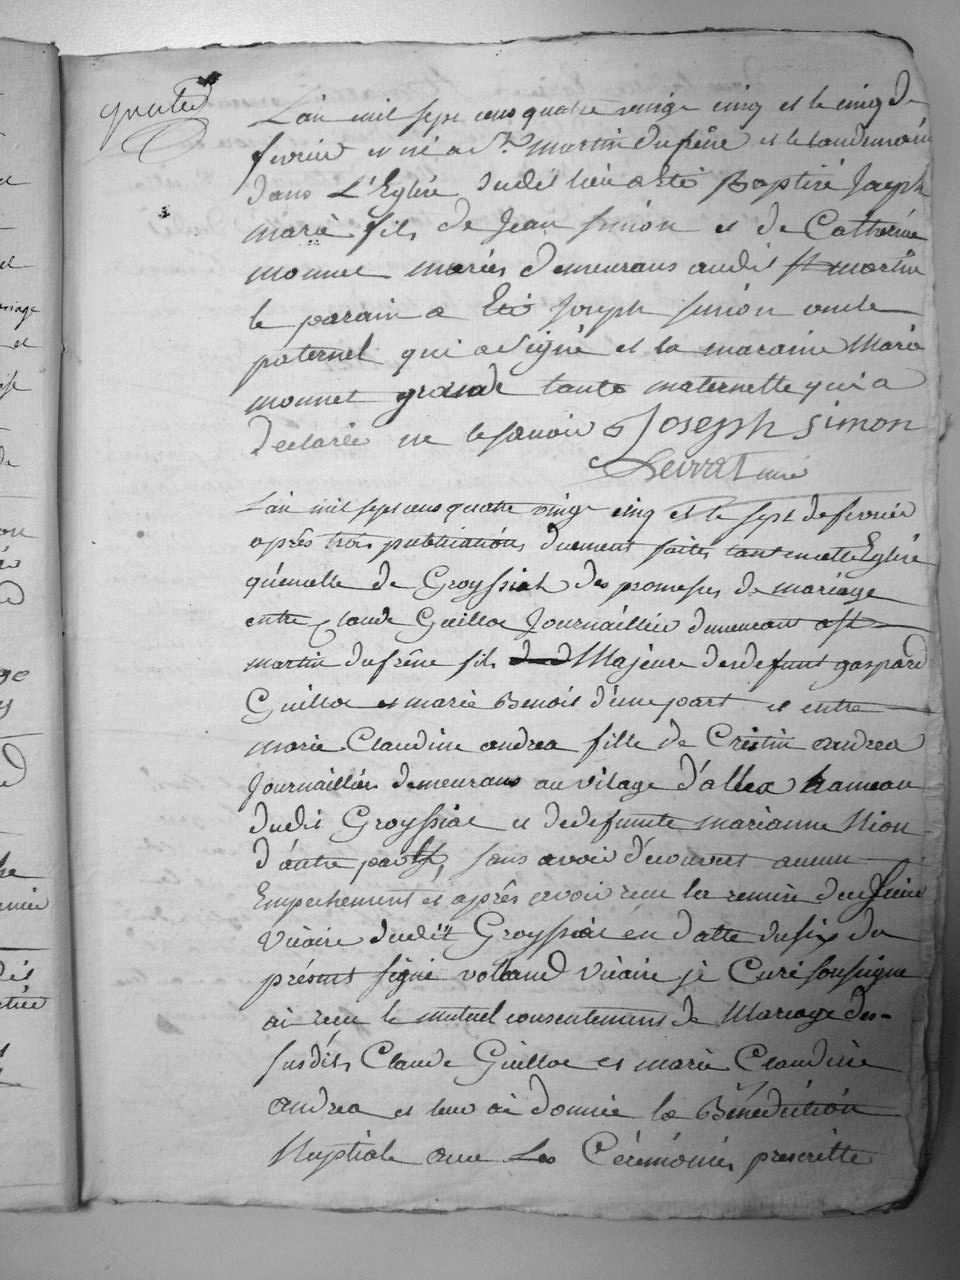 quatre
L'an mil sept cens quatre vingt cinq et le cinq de
fevrier est né a St martin du frêne et le landemain
dans L'Eglise dudit lieu a eté Baptisé Joseph
marie fils de Jean Simon et de Catherine
monnet mariés demeurans audit St martin
le parain a Eté Joseph Simon oncle
paternel qui a signé et la maraine Marie
monnet grande tante maternelle qui a
declarée ne le savoir Joseph Simon
curé
L'an mil sept cens quatre vingt cinq et le sept de fevrier
après trois publications duement faites tant en cette Eglise
qu'en celle de Groyssiat des promesses de mariage
entre Claude Guilloz Journaillier demeurant a St
martin du frêne fils Majeur des defunt gaspard
Guilloz et marie Benoit d'une part et entre
marie Claudine andrea fille de Crestin andrea
Journaillier demeurans au vilage d'allex hameau
dudit Groyssiat et de defunte marianne Nion
d'autre part, sans avoir découvert aucun
Empechement et après avoir reçu la remise du Sieur
Vicaire dudit Groyssiat en datte du six du
présent signé volland Vicaire je Curé soussigné
ai reçu le mutuel consentement de Mariage des-
susdits Claude Guilloz et marie Claudine
andrea et leur ai donné la Bénédiction
Nuptiale avec Les Cérémonies prescritte